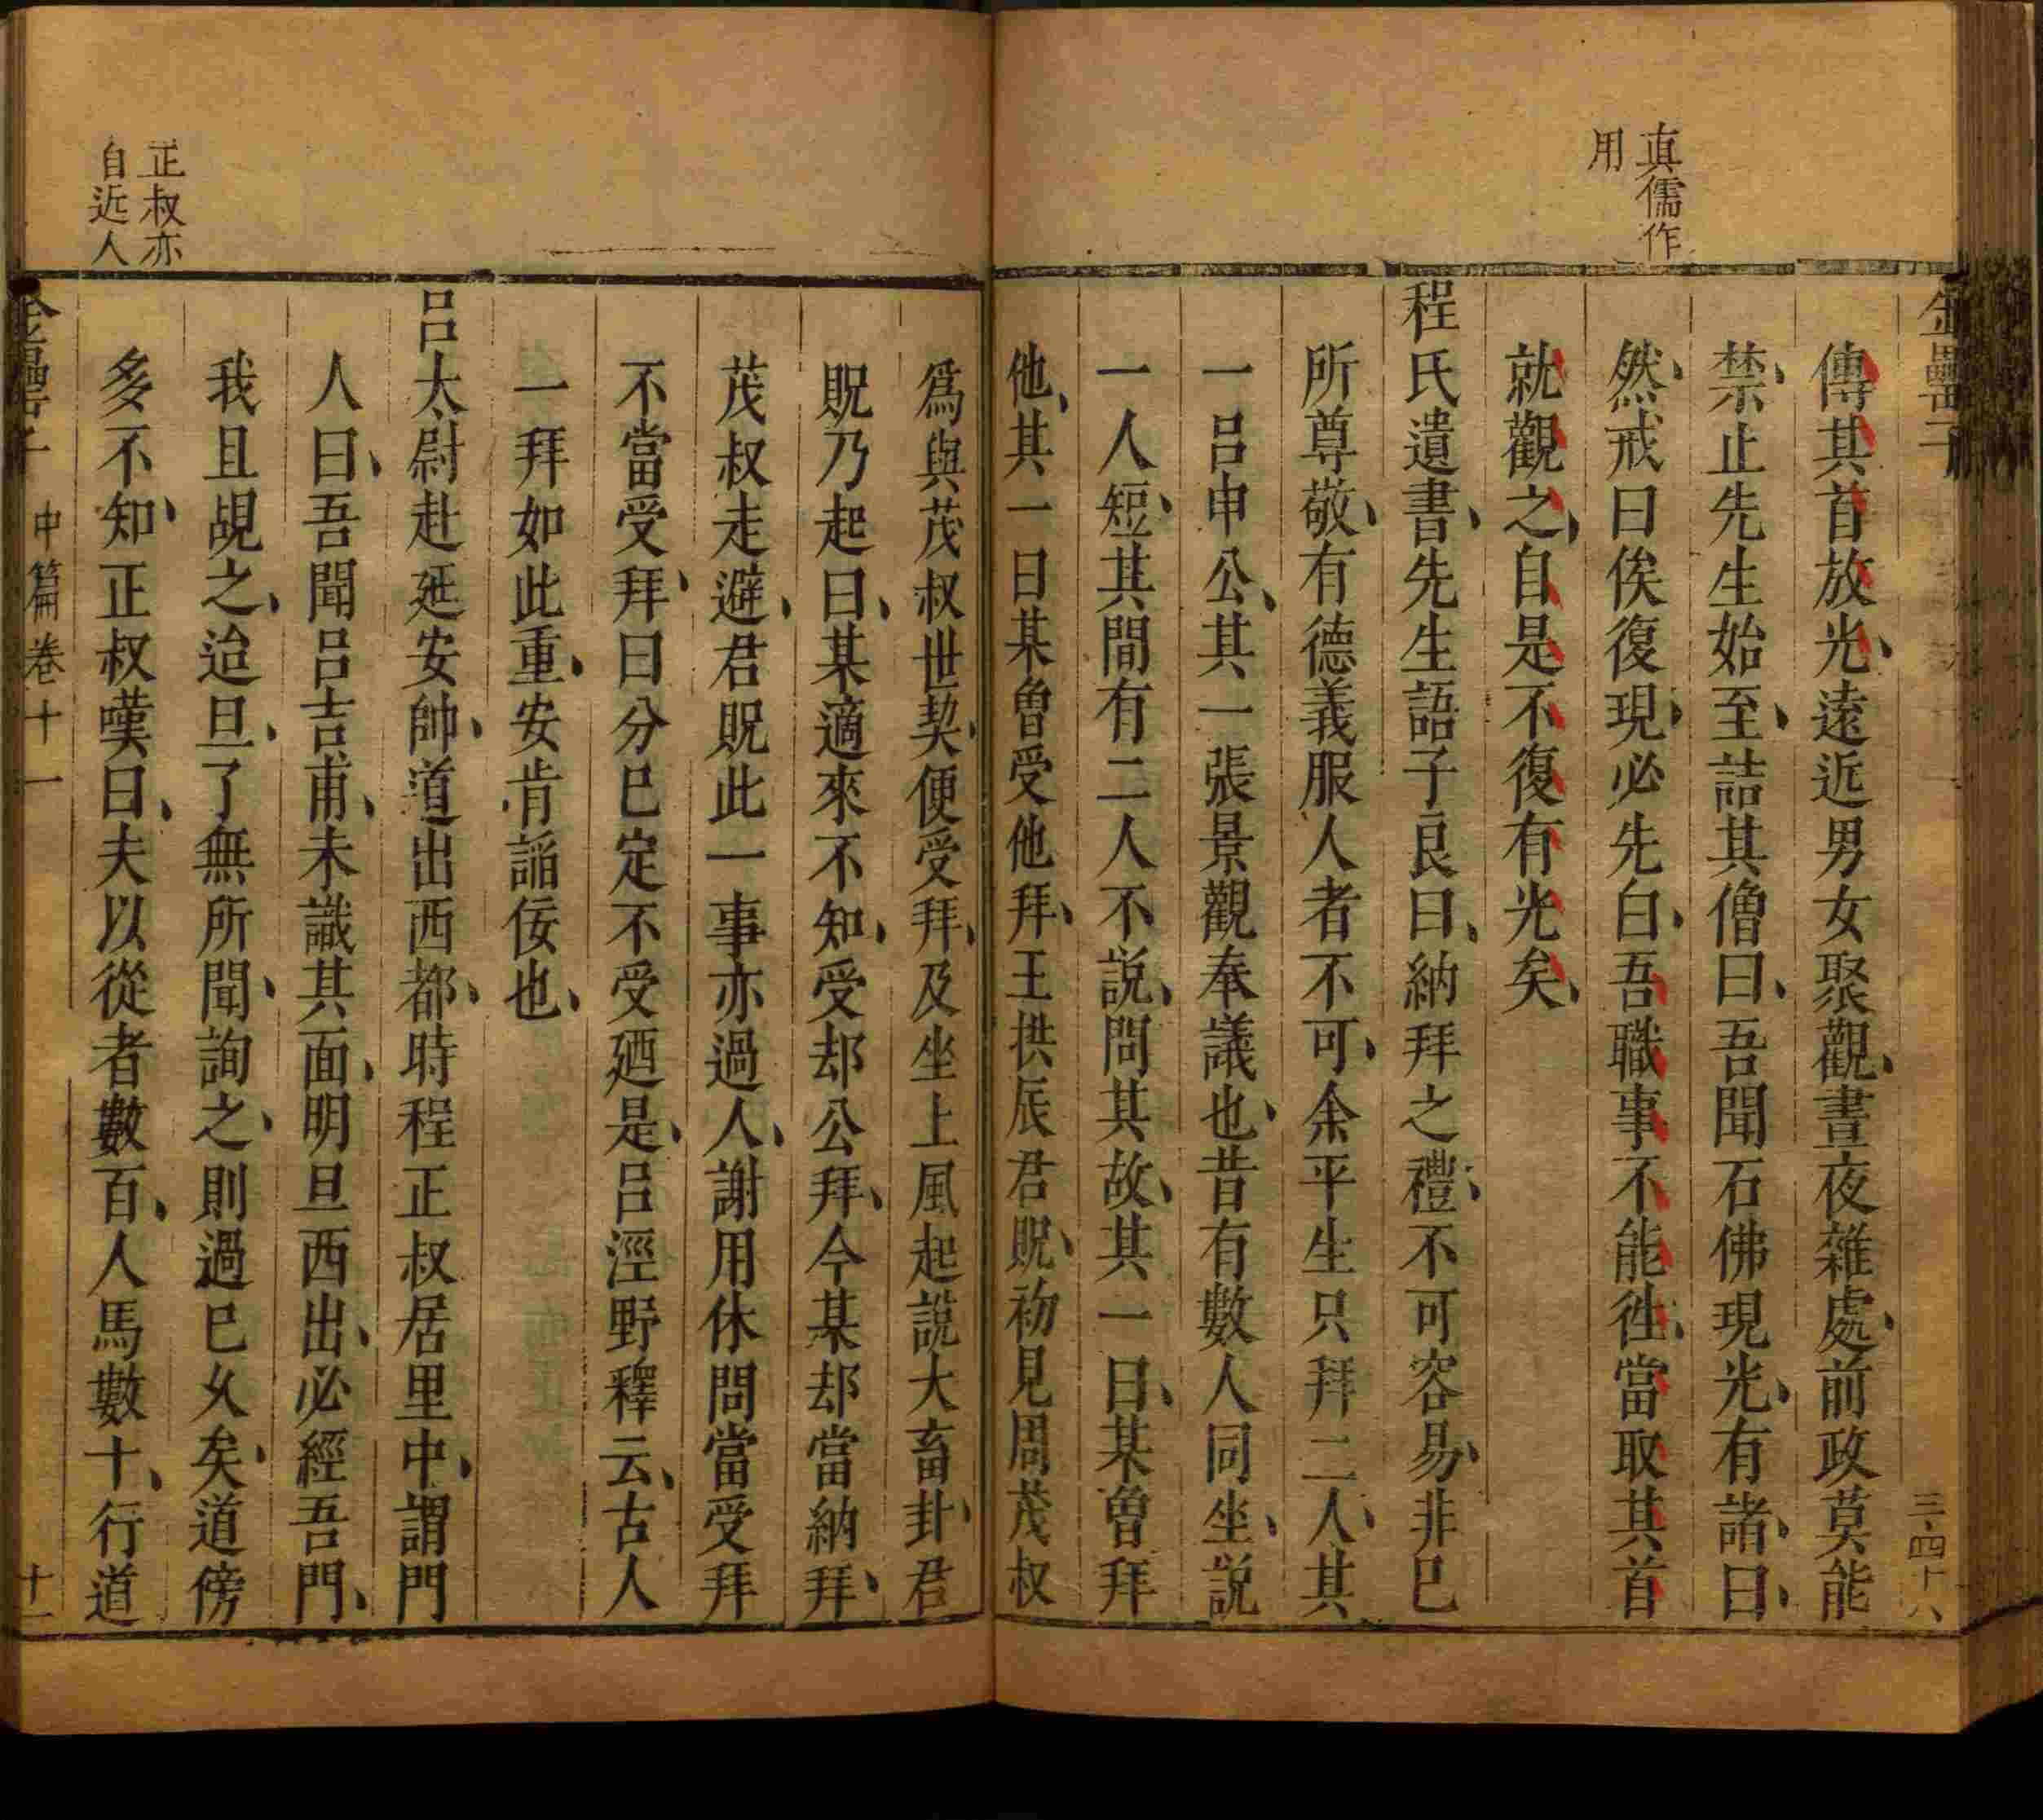 真儒作
用
金罍子
傳其首放光遠近男女聚觀晝夜雜處前政莫能
禁止先生始至詰其僧曰吾聞石佛現光有諸曰
然戒曰俟復現必先白吾職事不能徃當取其首
就觀之自是不復有光矣
程氏遺書先生語子良曰納拜之禮不可容易非巳
所尊敬有德義服人者不可余平生只拜二人其
一呂申公其一張景觀奉議也昔有數人同坐説
一人短其間有二人不説問其故其一曰某曽拜
他其一曰某曽受他拜王拱辰君貺初見周茂叔
爲與茂叔世契便受拜及坐上風起説大畜卦君
貺乃起曰某適來不知受却公拜今某却當納拜
茂叔走避君貺此一事亦過人謝用休問當受拜
不當受拜曰分巳定不受廼是呂涇野釋云古人
一拜如此重安肯諂佞也
呂太尉赴延安帥道出西都時程正叔居里中謂門
人曰吾聞呂吉甫未識其面明旦西出必經吾門
我且覘之迨旦了無所聞詢之則過巳乆矣道傍
多不知正叔嘆曰夫以從者數百人馬數十行道
正叔亦
自近人
金罍子
中篇卷十一
十一